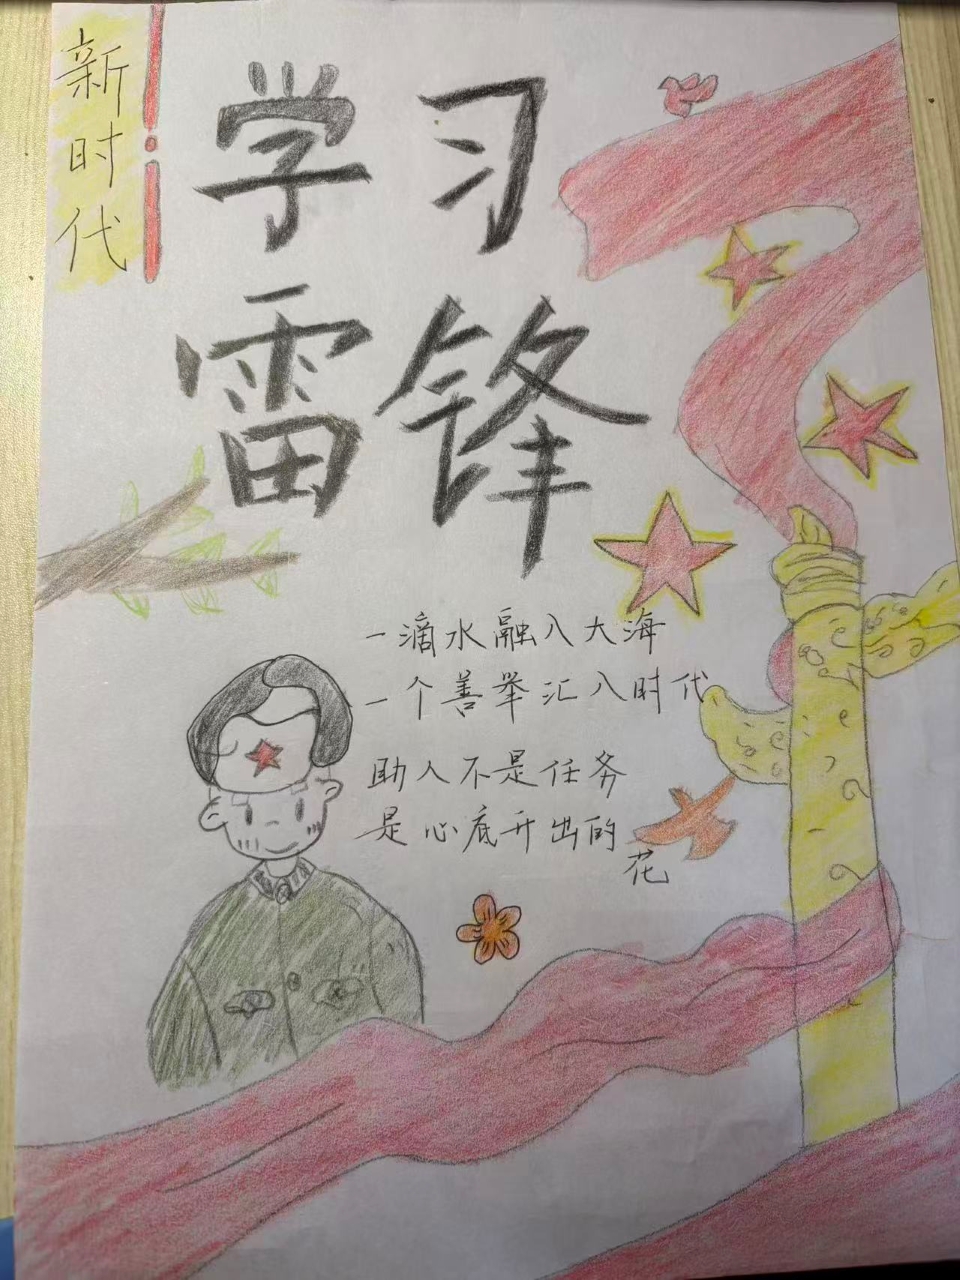 新时代
学习
雷锋
一滴水融入大海
一个善举汇入时代
助人不是任务
是心底开出的
花